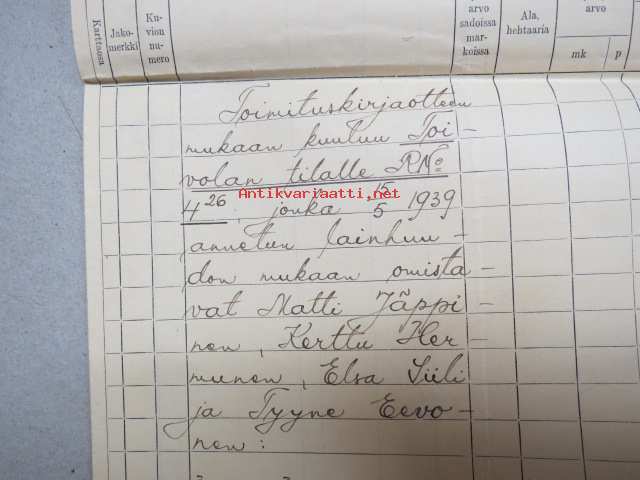 Karttaosa
Jako-
merkki
Ku-
vion
nu-
mero
arvo
sadoissa
mar-
koissa
Ala,
hehtaaria
arvo
mk
p
Toimituskirjaotteen
mukaan kuuluu Toi-
volan tilalle RNo
4 26, jonka 15/5 1939
Antikvariaatti.net
annetun lainhuu-
don mukaan omista-
vat Matti Jäppi-
nen, Kerttu Her-
munen, Elsa Siili
ja Tyyne Eevo-
nen: